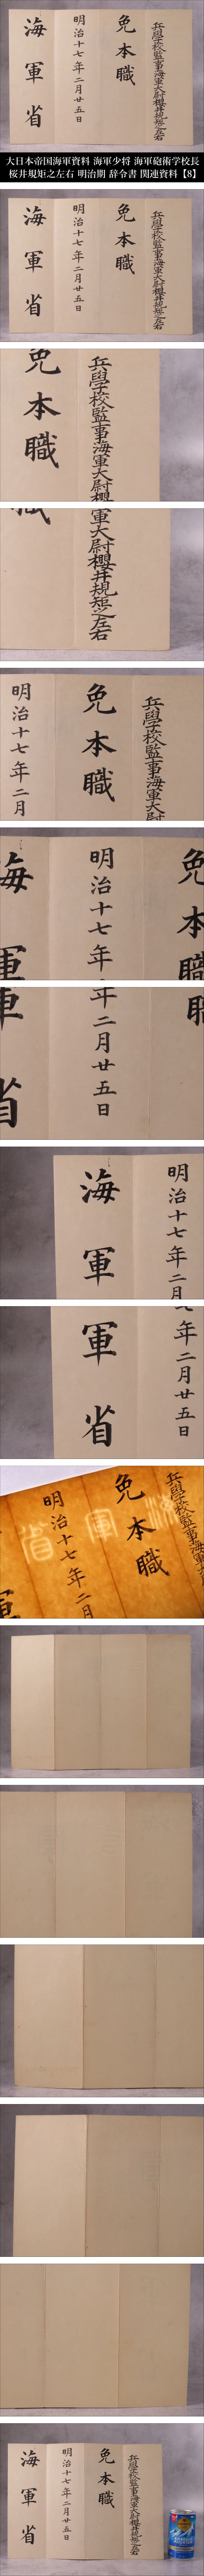 兵學校監事海軍大尉櫻井規矩之左右
免本職
明治十七年二月廿五日
海軍省
大日本帝国海軍資料 海軍少将 海軍砲術学校長
桜井規矩之左右 明治期 辞令書 関連資料【8】
兵學校監事海軍大尉櫻井規矩之左右
免本職
明治十七年二月廿五日
海軍省
兵學校監事海軍大尉櫻
免本職
軍大尉櫻井規矩之左右
職
兵學校監事海軍大尉
免本職
明治十七年二月
免本職
明治十七年
海軍
年二月廿五日
軍省
明治十七年二月
海軍
年二月廿五日
軍省
兵學校監事海軍
免本職
明治十七年二月
海軍省
兵學校監事海軍大尉櫻井規矩之左右
免本職
明治十七年二月廿五日
海軍省